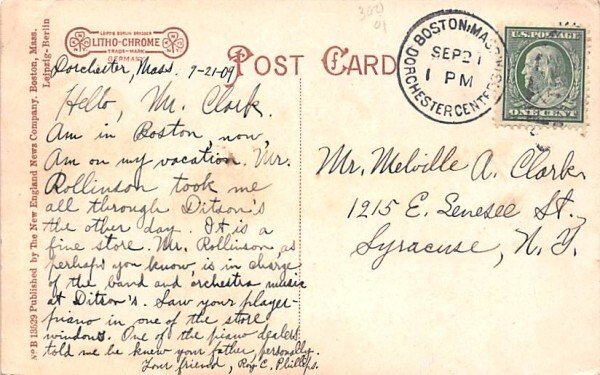 Nº B 13529 Published by The New England News Company. Boston, Mass.
Leipzig-Berlin
LEIPZIG BERLIN DRESDEN
LITHO-CHROME
TRADE-MARK
GERMANY
POST CARD
BOSTON, MASS.
SEP 21
1 PM
DORCHESTER CENTER
U.S. POSTAGE
ONE CENT
Dorchester, Mass. 9-21-09
Hello, Mr. Clark.
Am in Boston, now,
Am on my vacation. Mr.
Rollinson took me
all through Ditson's
the other day. It is a
fine store. Mr. Rollinson, as
perhaps you know, is in charge
of the band and orchestra music
at Ditson's. Saw your player-
piano in one of the store
windows. One of the piano dealers
told me he knew your father, personally.
Your friend, Roy C. Phillips.
Mr. Melville A. Clark,
1215 E. Genesee St.,
Syracuse, N. Y.